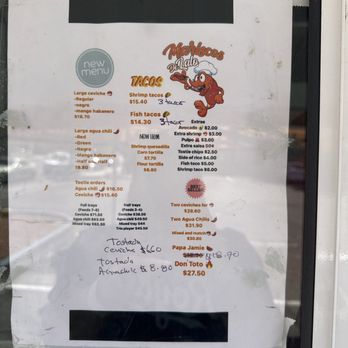 new
menu
Mariscos
El Lalo
TACOS
Large ceviche
-Regular
-negro
-mango habanero
$18.70
Large agua chili
-Red
-Green
-Negro
-Mango habanero
-Half and half
19.80
Tostie orders
Agua chili $16.50
Ceviche $15.40
Full trays
(Feeds 7-8)
Ceviche $71.50
Agua chili $82.50
Mixed tray $82.50
Shrimp tacos
$15.40 3 tacos
Fish tacos
$14.30 3 tacos
NEW ITEM
Shrimp quesadilla
Corn tortilla
$7.70
Flour tortilla
$8.80
Half trays
(Feeds 3-4)
Ceviche $38.50
Agua chili $49.50
Mixed tray $44
Trio player $45.50
Extras
Avocado $2.00
Extra shrimp $3.00
Pulpo $3.00
Extra salsa 50¢
Tostie chips $2.50
Side of rice $4.00
Fish taco $5.00
Shrimp taco $6.00
BEST
SELLER
Two ceviches for
$29.60
Two Agua Chilis
$31.90
Mixed and match
$30.80
Papa Jamie
$18.70
Don Toto
$27.50
Tostada
Ceviche $6.60
Tostada
Aguachile $8.80